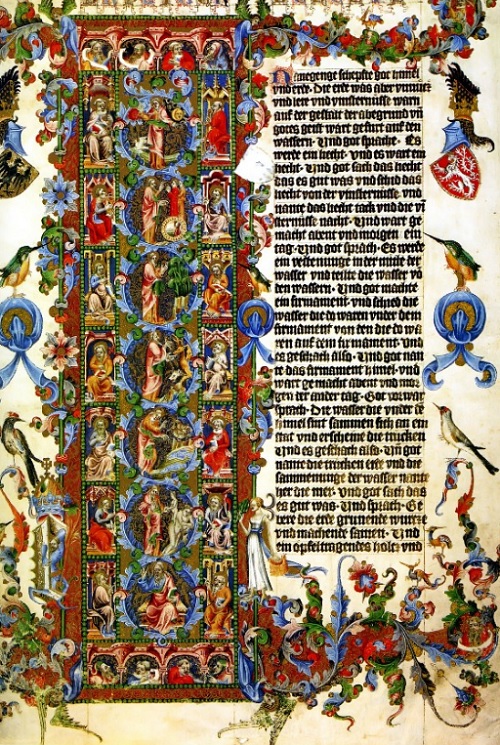 Anegenge schepfte got himel
vnd erd. Die erde was aber vnnucz
vnd lere vnd vinsternusse warn
auf der gestalt der abegrund vn̄
gotes geist wart gefurt auf den
wassern. Vnd got sprache. Es
werde ein liecht. vnd es wart ein
liecht. Vnd got sach das liecht
das es gut was vnd schid das
liecht von der vinsternusse. vnd
nante das liecht tach vnd die vī
sternusse nacht. Vnd wart ge
macht abent vnd morgen ein
tag. Vnd got sprach. Es werde
ein vestenunge in der mitte der
wasser vnd teilte die wasser vō
den wassern. Vnd got machte
ein firmament. vnd schied die
wasser die do waren vnder dem
firmament von den die do wa
ren auf dem firmament. vnd
es geschach also. Vnd got nan
te das firmament himel. vnd
wart gemacht abent vnd mor
gen der ander tag. Got vorwar
sprach. Die wasser die vnder dē
himel sint samnen sich an ein
stat vnd erscheine die trucken
Vnd es geschach also. Vn̄ got
nante die trucken erde vnd die
sammenunge der wasser nante
her die mer. vnd got sach das
es gut was. Vnd sprach. Ge
bere die erde grunende wurcze
vnd machende samen. Vnd
ein opfeltragendes holcz vnd